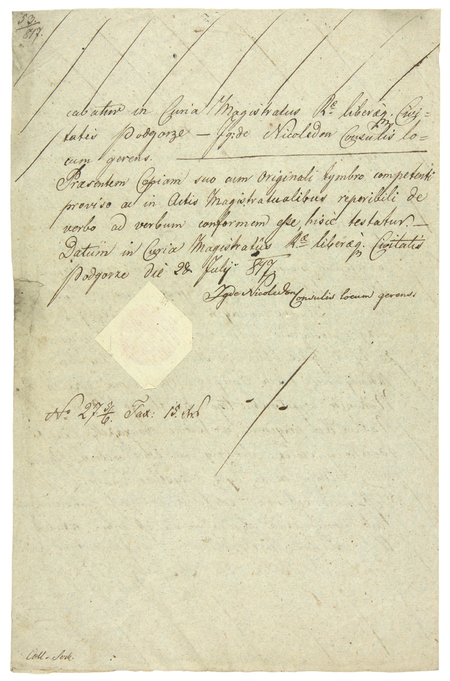 53/817.
cabatur in Curia Magistratus Rae liberaeq. Civi=
tatis Podgorze — Igde Nicoledon Consulis lo=
cum gerens.
Praesentem Copiam suo cum Originali tymbro competenti
proviso ac in Actis Magistratualibus reperibili de
verbo ad verbum conformem esse hisce testatur. —
Datum in Curia Magistratus Rae liberaeq Civitatis
Podgorze die 28 July 817
Igde Nicoledon Consulis locum gerens.
No 27 5/6. Tax. 15.
Coll.